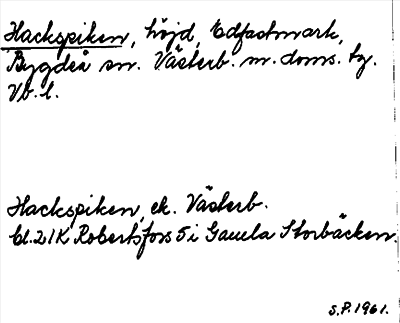 Hackspiken, höjd, Edfastmark,
Bygdeå sn. Västerb. m. doms. tg.
Vb. l.
Hackspiken, ek. Västerb.
bl. 21K Robertsfors 5 i Gamla Storbäcken.
S.P. 1961.